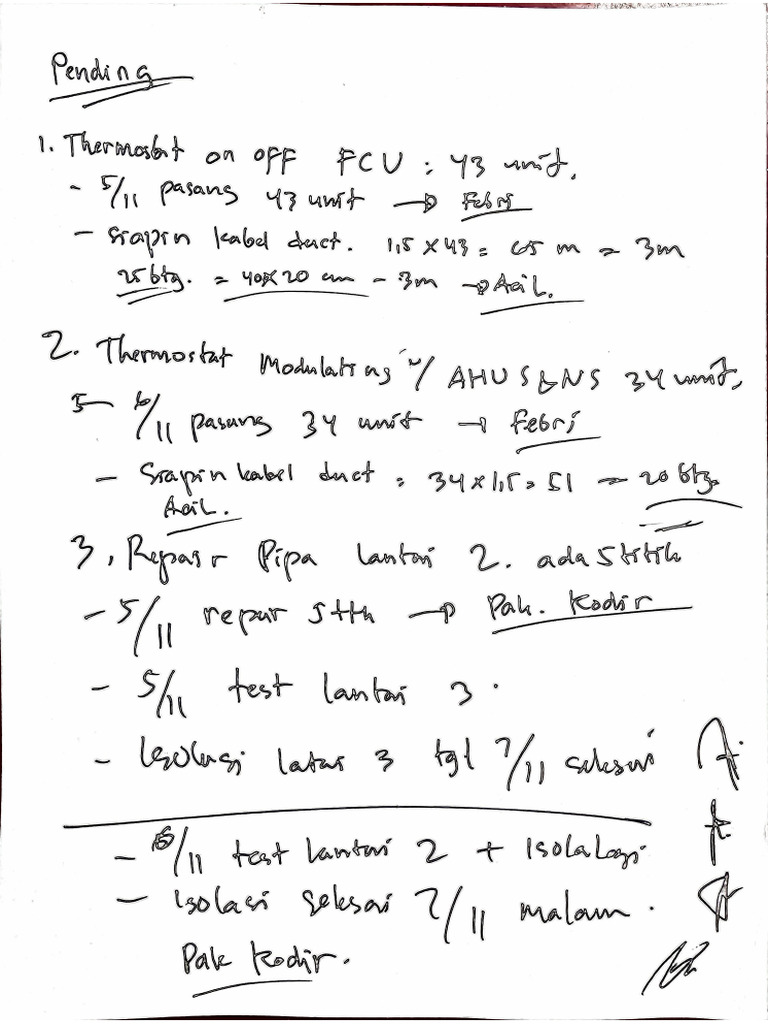 Pending
1. Thermostat on off FCU : 43 unit.
- 5/11 pasang 43 unit → Febri
- Siapin kabel duct. 1,5 x 43 = 65 m = 3m
25 btg. = 40x20 cm - 3m → Acil.
2. Thermostat Modulating u/ AHU S&NS 34 unit.
5 - 6/11 pasang 34 unit → Febri
- Siapin kabel duct = 34 x 1,5 = 51 - 20 btg.
Acil.
3. Repair Pipa lantai 2. ada 5 titik
- 5/11 repair 5 ttk → Pak. Kodir
- 5/11 test lantai 3.
- Isolasi latai 3 tgl 7/11 selesai
- 6/11 test lantai 2 + Isolalasi
- Isolasi selesai 7/11 malam.
Pak Kodir.